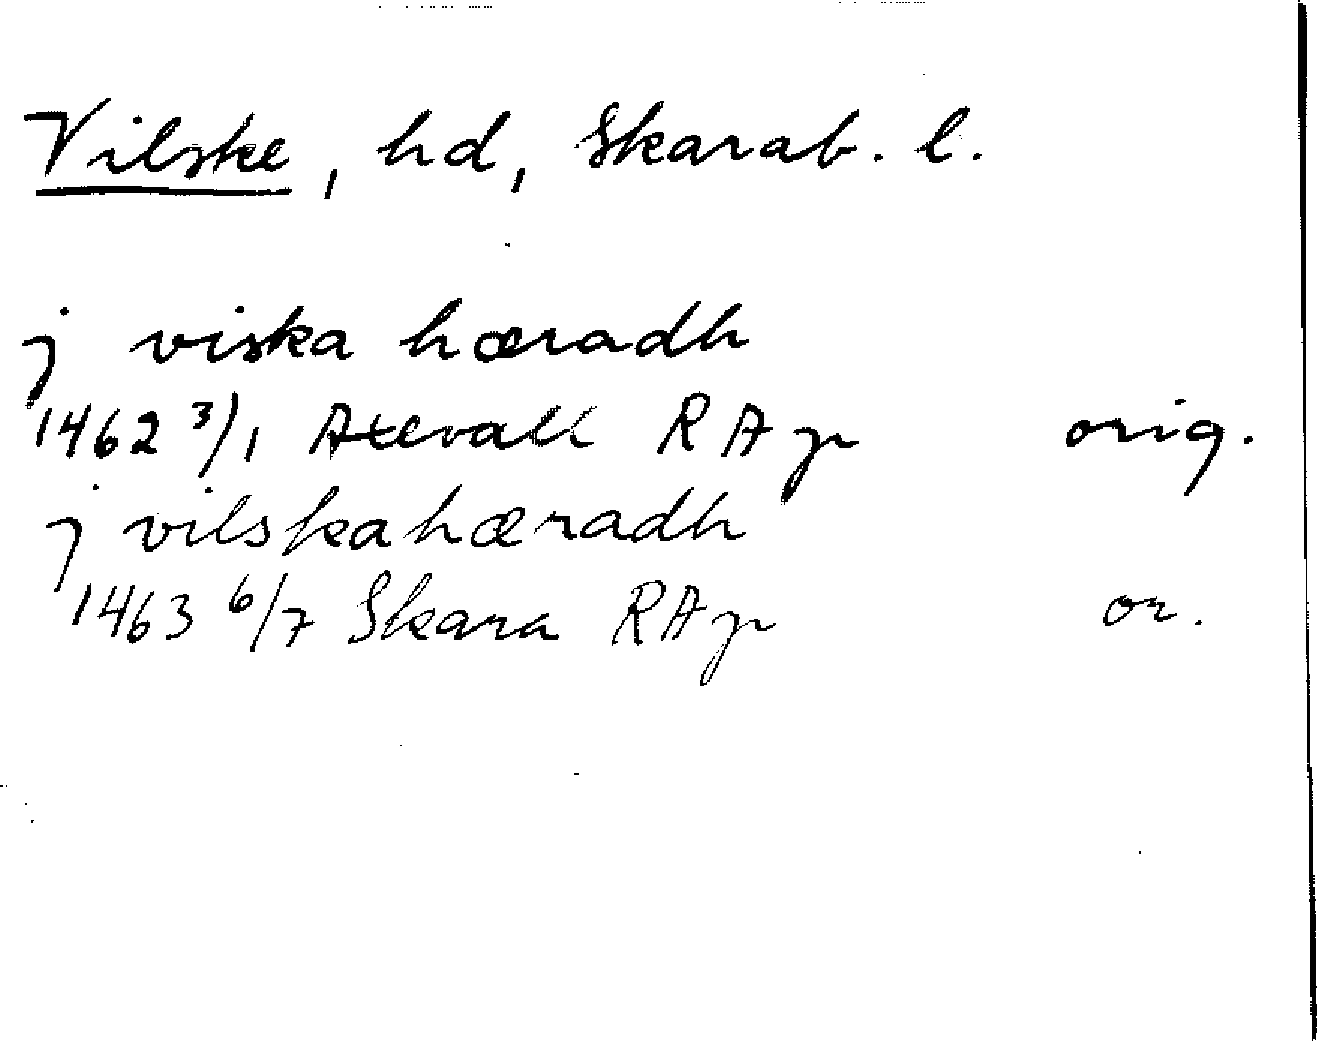 Vilske, hd, Skarab. l.
j viska hæradh
1462 3/1 Axevall RAp orig.
j vilskahæradh
1463 6/7 Skara RAp or.